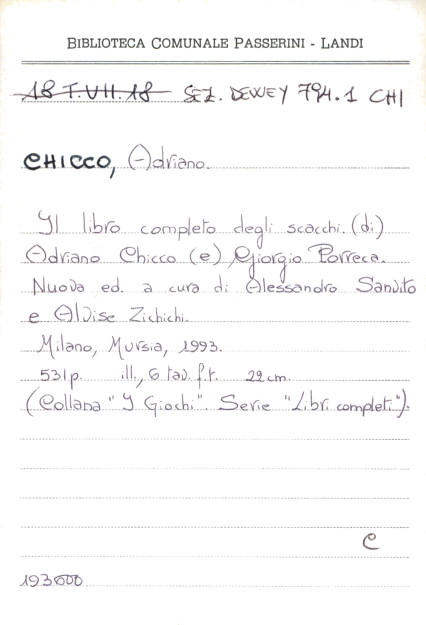 BIBLIOTECA COMUNALE PASSERINI - LANDI
18 T.VII.18 SEZ. DEWEY 794.1 CHI
CHICCO, Adriano.
Il libro completo degli scacchi. (di)
Adriano Chicco (e) Giorgio Porreca.
Nuova ed. a cura di Alessandro Sanvito
e Alvise Zichichi.
Milano, Mursia, 1993.
531p. ill., 6 tav. f.t. 22 cm.
(Collana "I Giochi". Serie "Libri completi").
C
193000